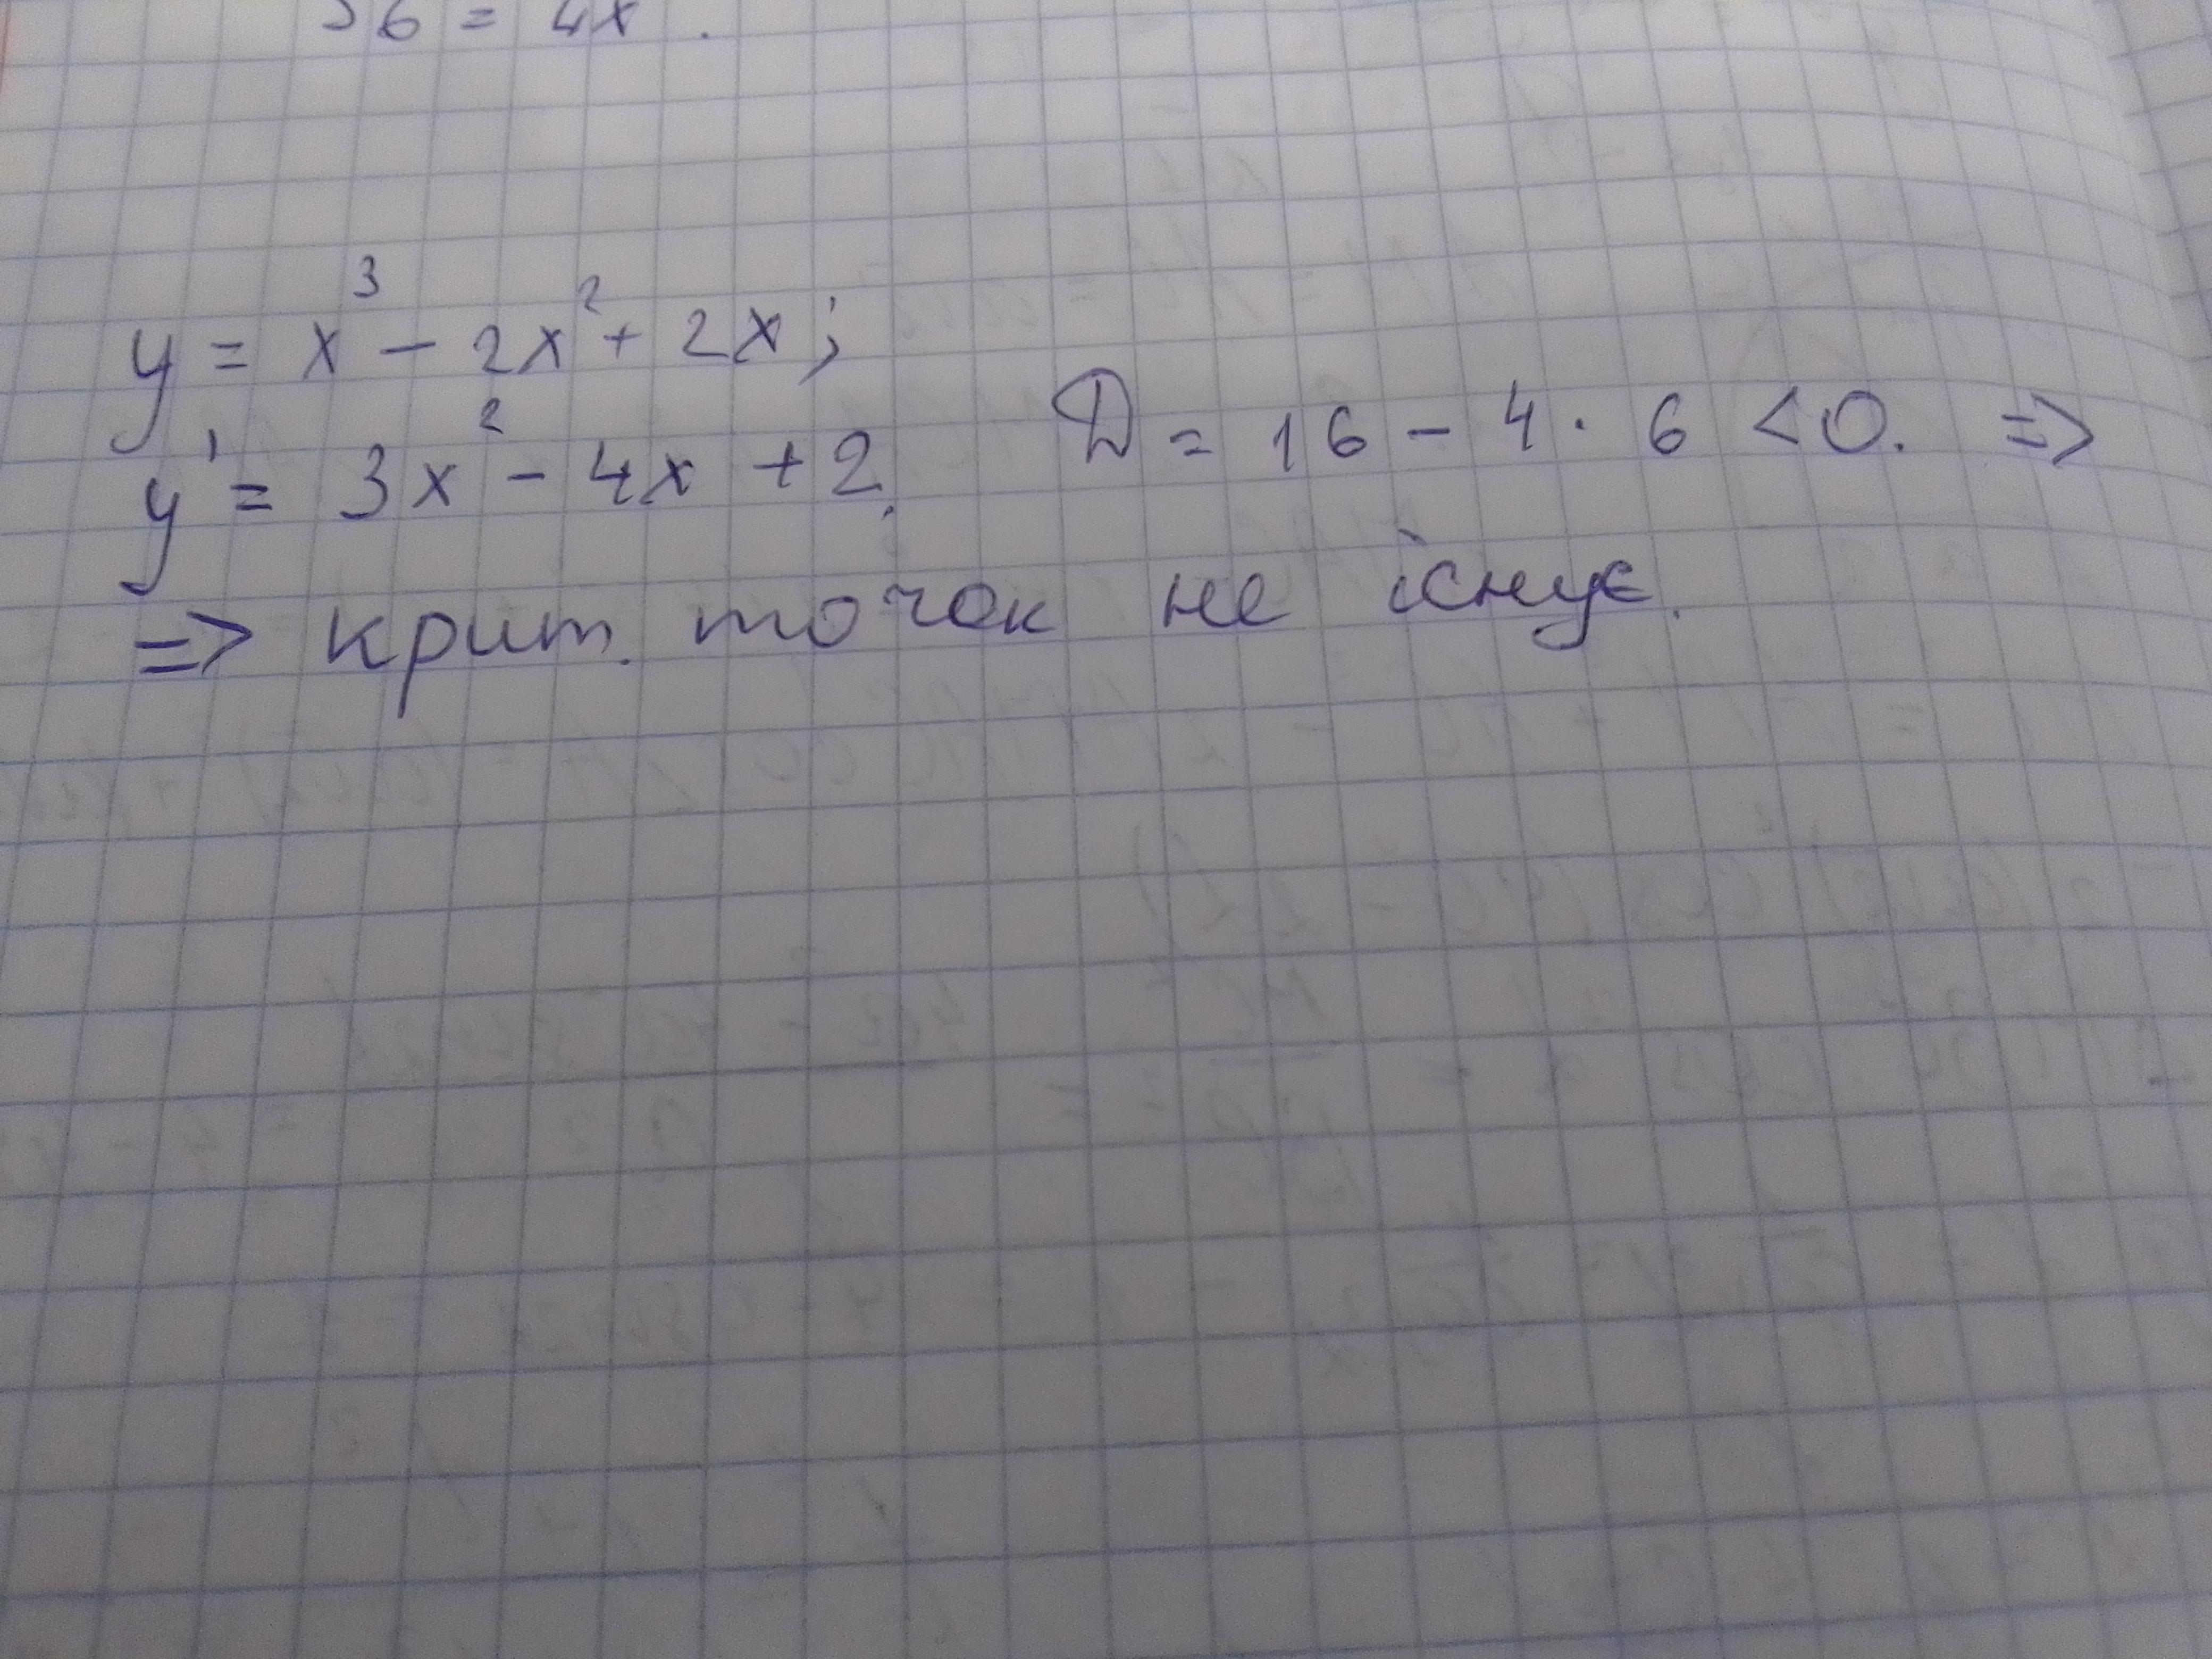 36 = 4x.
y = x³ - 2x² + 2x;
y' = 3x² - 4x + 2. D = 16 - 4 · 6 < 0. =>
=> крит. точок не існує.